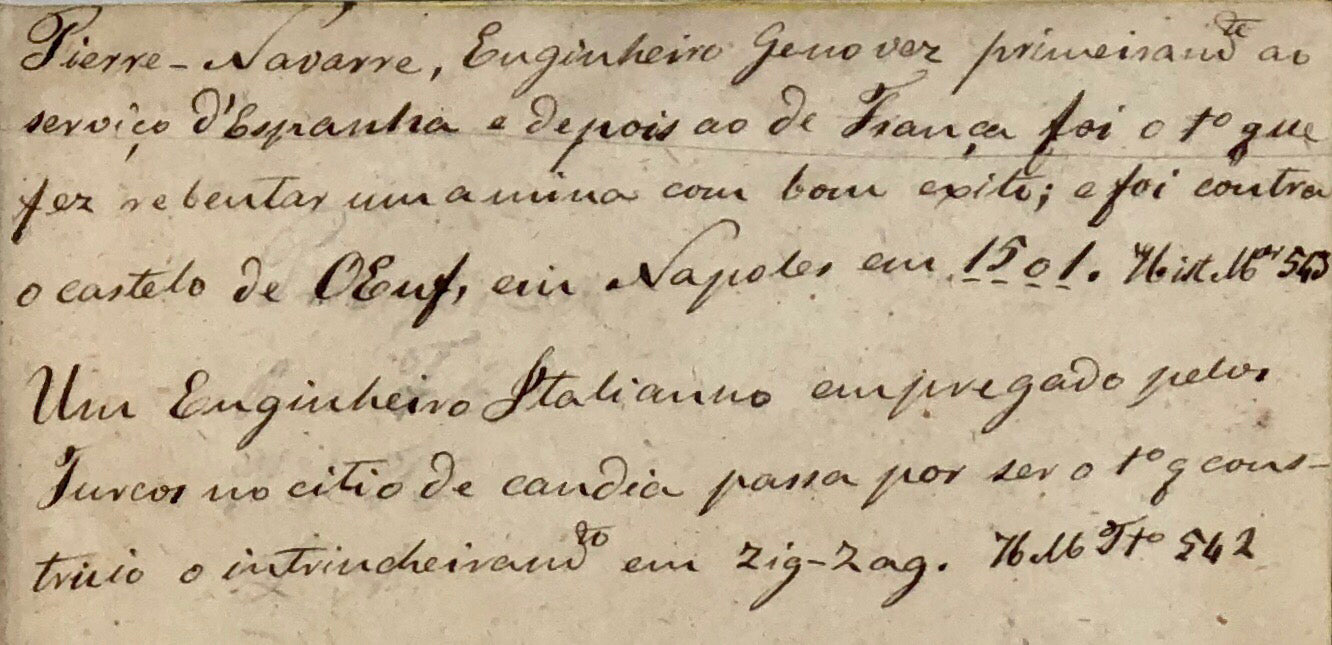 Pierre-Navarre, Enginheiro Genovez primeiramte ao
serviço d'Espanha e depois ao de França foi o 1º que
fez rebentar uma mina com bom exito; e foi contra
o castelo de OEuf, em Napoles em 1501. Hist. Mor 543
Um Enginheiro Italianno empregado pelos
Turcos no citio de candia passa por ser o 1º q cons-
truio o intrincheiramto em zig-zag. H M 542